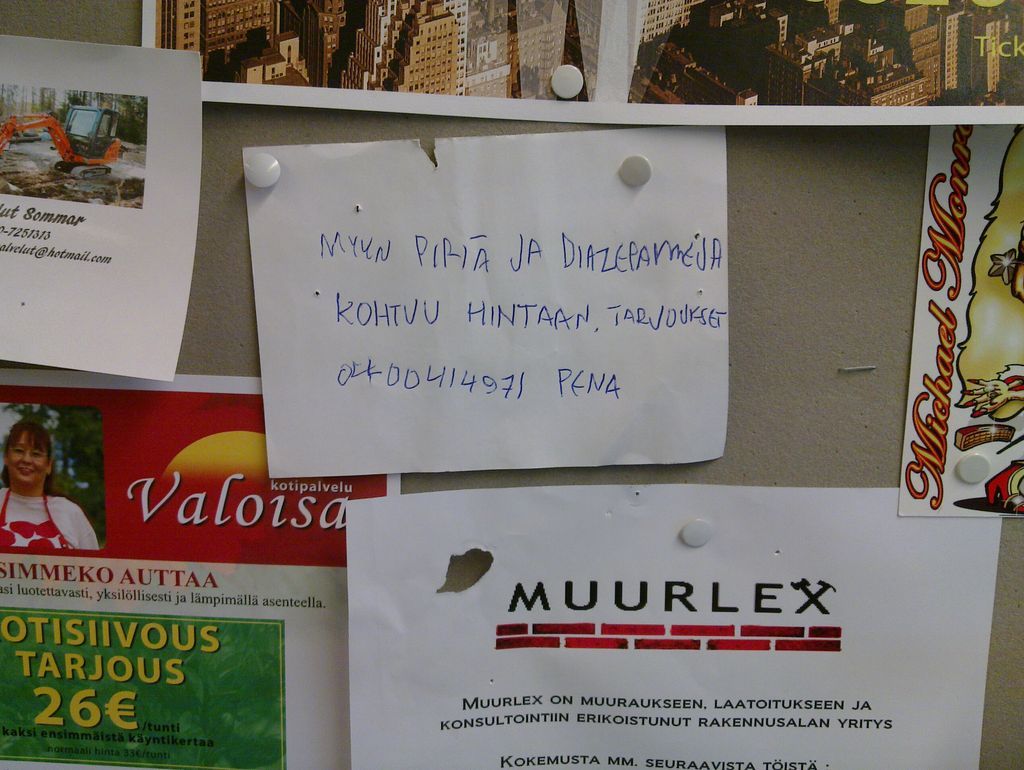 Tick
lut Sommar
0-7251313
alvelut@hotmail.com
MYYN PIRIÄ JA DIAZEPAMEJA
KOHTUU HINTAAN, TARJOUKSET
PENA
Michael Monro
kotipalvelu
Valoisa
SIMMEKO AUTTAA
asi luotettavasti, yksilöllisesti ja lämpimällä asenteella.
OTISIIVOUS
TARJOUS
26€/tunti
kaksi ensimmäistä käyntikertaa
normaali hinta 33€/tunti
MUURLEX
MUURLEX ON MUURAUKSEEN, LAATOITUKSEEN JA
KONSULTOINTIIN ERIKOISTUNUT RAKENNUSALAN YRITYS
KOKEMUSTA MM. SEURAAVISTA TÖISTÄ :